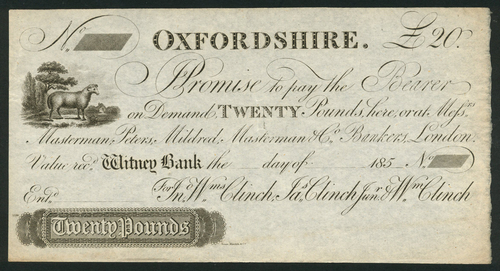 No OXFORDSHIRE. £20.
Promise to pay the Bearer
on Demand TWENTY Pounds, here, or at Messrs
Masterman, Peters, Mildred, Masterman & Co. Bankers, London.
Value recd. Witney Bank the day of 185 No
For Jno. Wms Clinch, Jas. Clinch Junr. & Wm Clinch
Entd.
Twenty Pounds